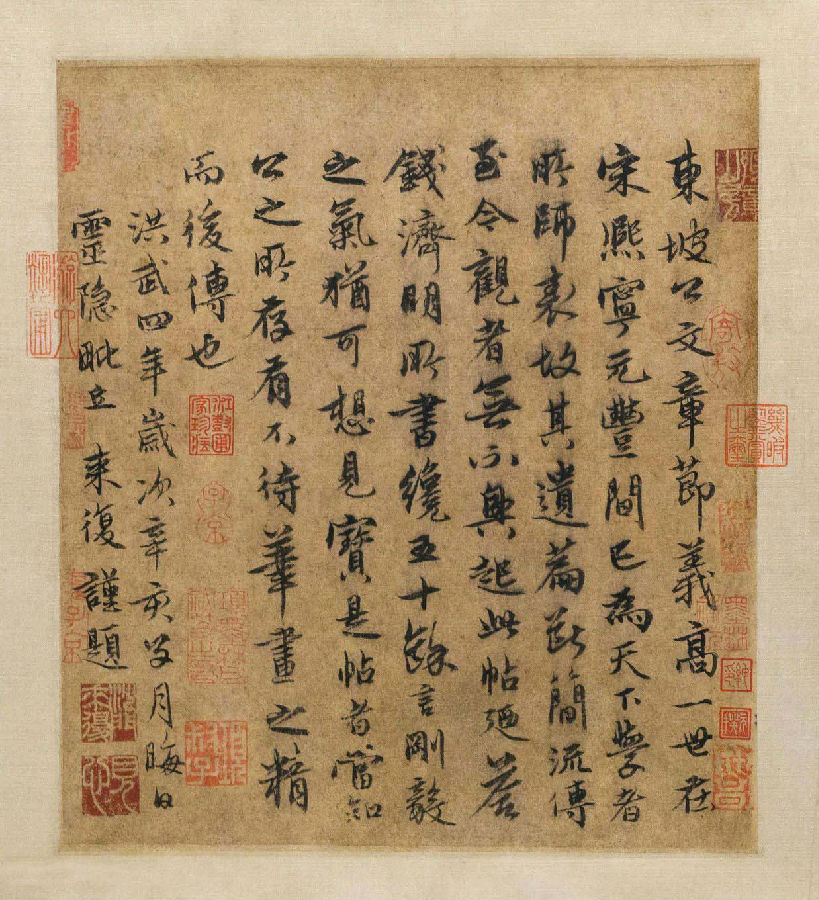 東坡公文章節義高一世在
宋熙寧元豐間已為天下學者
所師表故其遺篇斷簡流傳
至今觀者無不興起此帖廼答
錢濟明所書纔五十餘言剛毅
之氣猶可想見寶是帖者當知
公之所存有不待筆畫之精
而後傳也
洪武四年歲次辛亥月晦日
靈隱毗丘 來復謹題
幾暇鑒賞之璽
子京